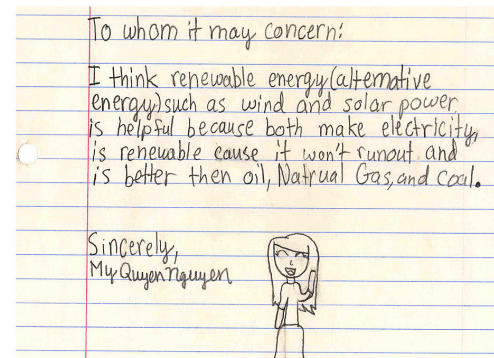 To whom it may concern:
I think renewable energy(alternative
energy)such as wind and solar power
is helpful because both make electricity,
is renewable cause it won't runout and
is better then oil, Natrual Gas, and coal.
Sincerely,
My Quyen nguyen